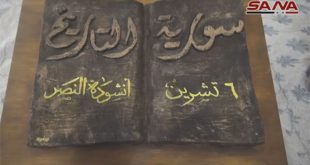 SANA
سورية التاريخ
٦ تشرين أنشودة النصر